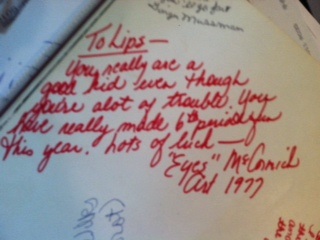 To Lips —
You really are a
good kid even though
you're alot of trouble. You
have really made 6th period fun
this year. Lots of luck —
"Eyes" McCormick
Art 1977